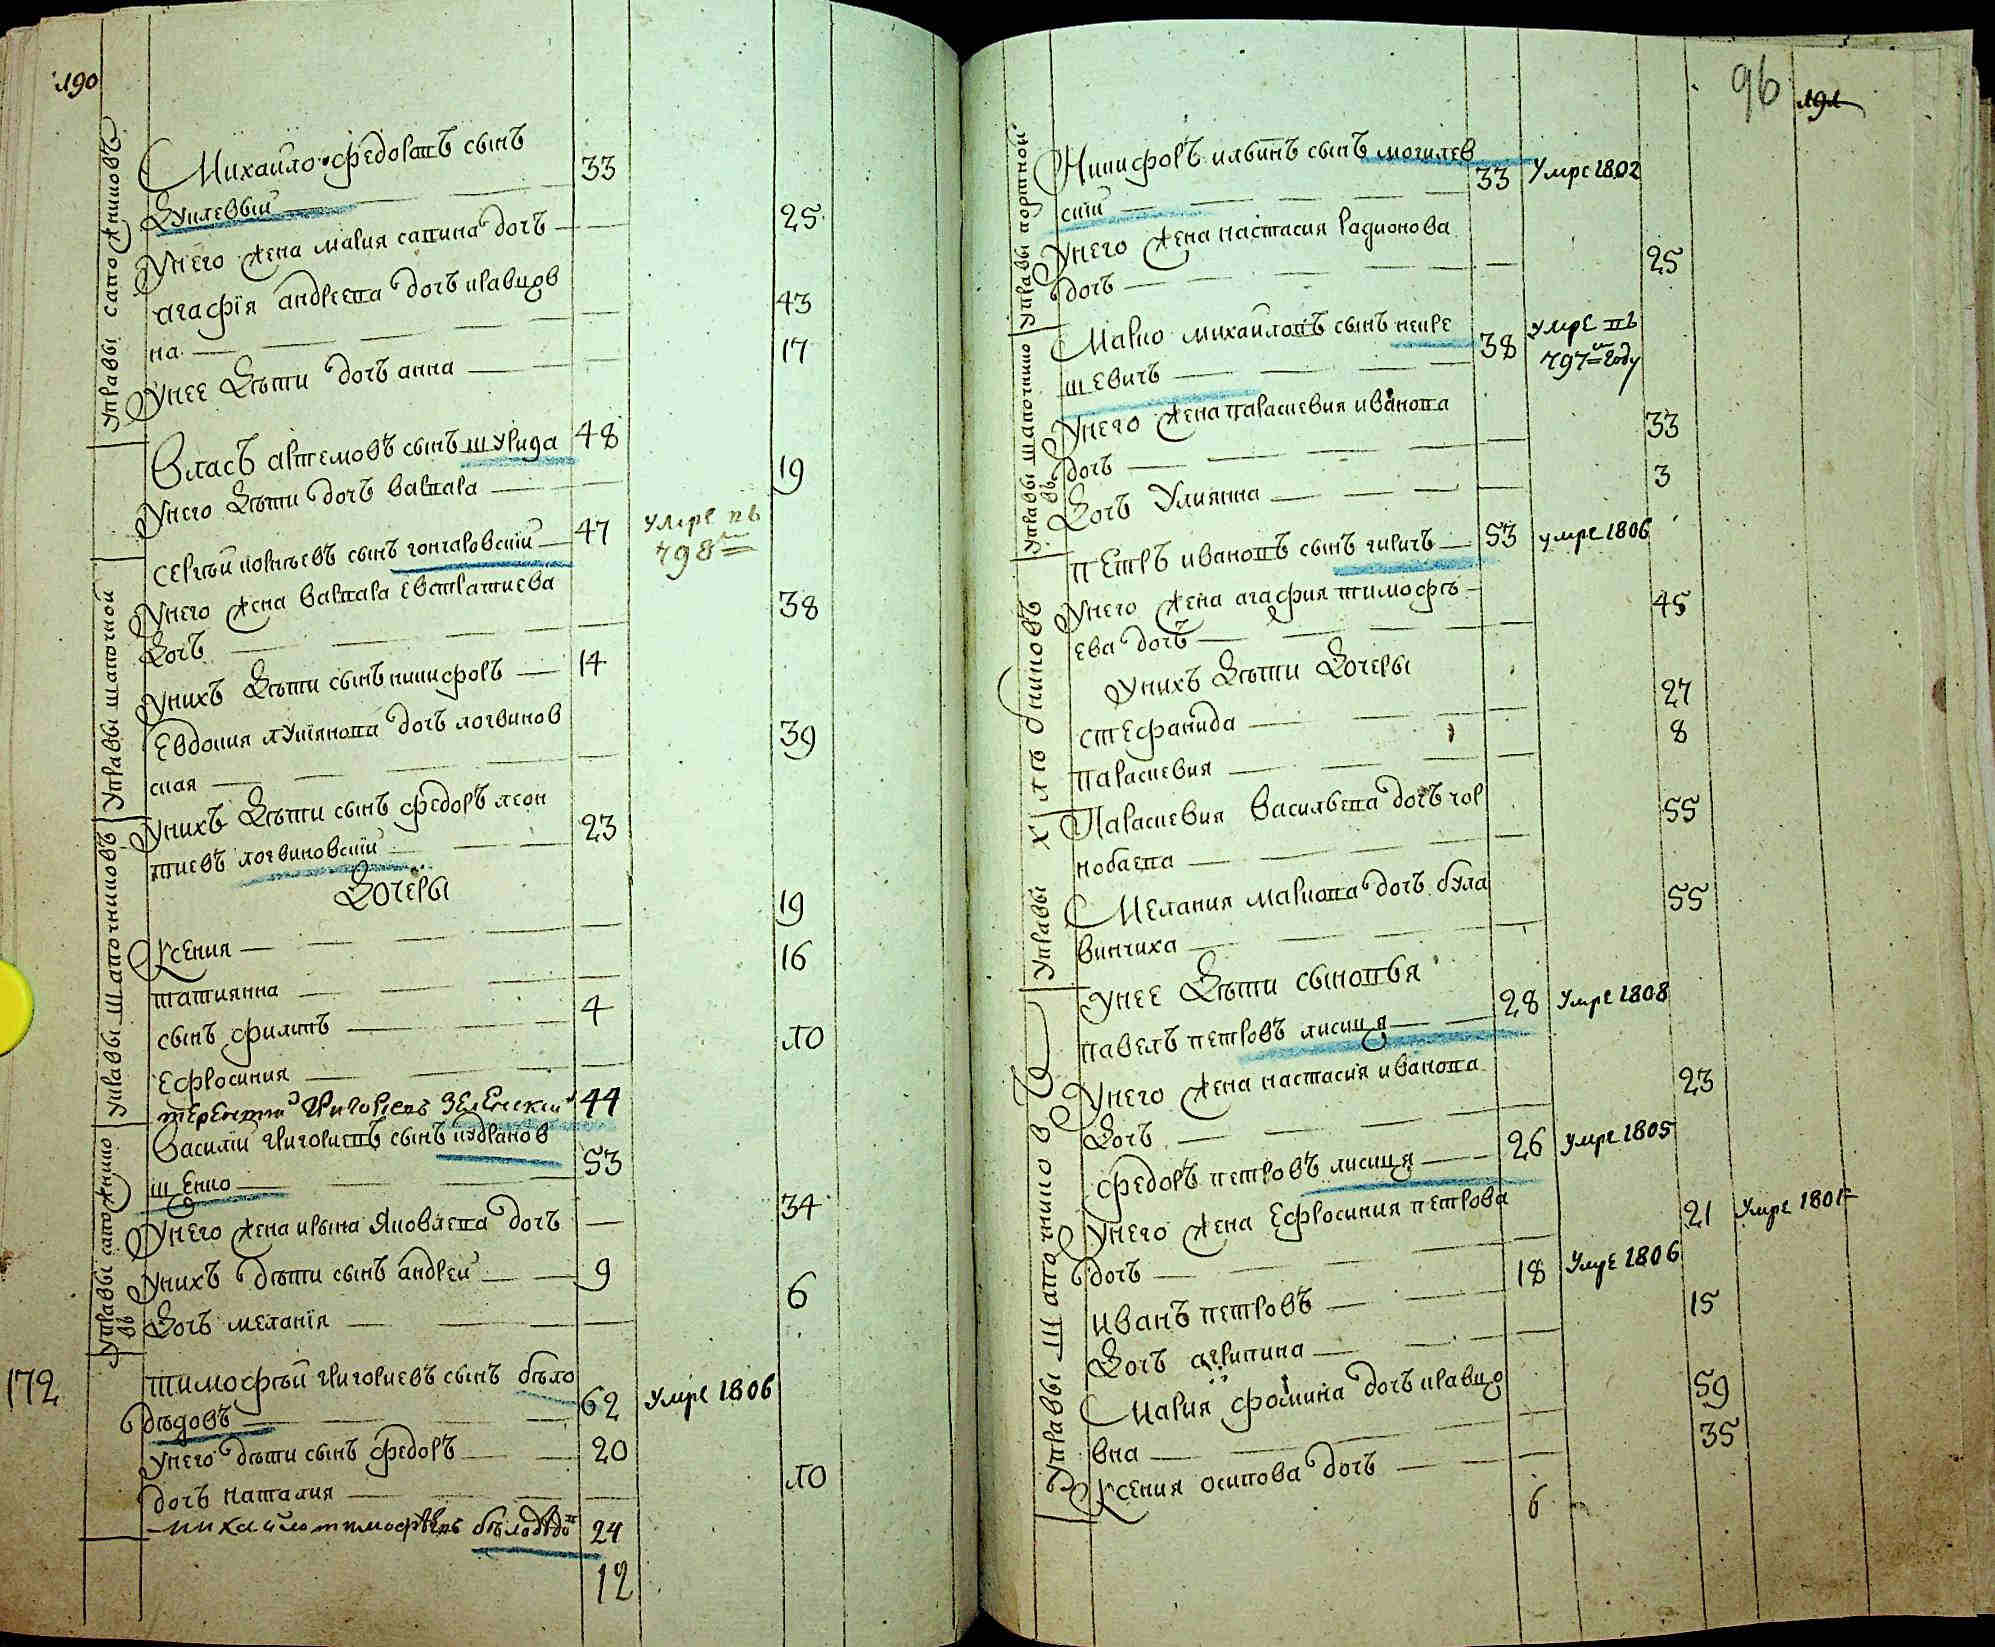 190
Управы сапожниковъ
Михайло Федоровъ сынъ 33
Кулевый
Унего жена мария савина дочь 25
агафія андреева дочь кравцов
на 43
Унее дѣти дочь анна 17
Власъ артемовъ сынъ шкурида 48
Унего дѣти дочь варвара 19
Управы шапочной
Сергѣй корнѣевъ сынъ гончаровскій 47 умре въ 798
Унего жена варвара евстратиева
дочь 38
Унихъ дѣти сынъ никифоръ 14
Евдокия лукіянова дочь логвинов
ская 39
Управы шапочниковъ
Унихъ дѣти сынъ федоръ леон
тиевъ логвиновскій 23
Дочеры
Ксения 19
татиянна 16
сынъ филипъ 4
Ефросиния 10
терентий григориевъ Зеленский 44
Управы сапожнико
въ
Василій григориевъ сынъ
щенко 53
Унего жена ирина яковлева дочь 34
Унихъ дѣти сынъ андрей 9
Дочь меланія 6
172
тимофѣй григориевъ сынъ бѣло
дѣдовъ 62 умре 1806
унего дѣти сынъ федоръ 20
дочь наталия 10
михайло тимофѣевъ бѣлодѣдов 24
12
96 191
Управы портной
Никифоръ ильинъ сынъ могилев
скій 33 умре 1802
Унего жена настасия радионова
дочь 25
Управы шапочнико
въ
Марко михайловъ сынъ
шевичъ 38 умре въ
797 году
Унего жена параскевия иванова
дочь 33
Дочь Улиянна 3
Управы хлѣбниковъ
Петръ ивановъ сынъ киричъ 53 умре 1806
Унего жена агафия тимофѣ-
ева дочь 45
Унихъ дѣти дочеры
стефанида 27
параскевия 8
Параскевия васильева дочь чор
нобаева 55
Мелания маркова дочь була
винчиха 55
Управы шапочниковъ
Унее дѣти сыновья
павелъ петровъ лисиця 28 умре 1808
Унего жена настасия иванова
дочь 23
федоръ петровъ лисиця 26 умре 1805
Унего жена Ефросиния петрова
дочь 21 умре 1801
иванъ петровъ 18 умре 1806
Дочь агрипина 15
Мария фомина дочь кравцо
вна 59
Ксения осипова дочь 35
6